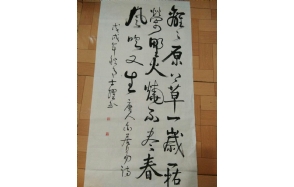 離々原上草一歲枯
榮野火燒不盡春
風吹又生
唐人白居易詩
戊戌年